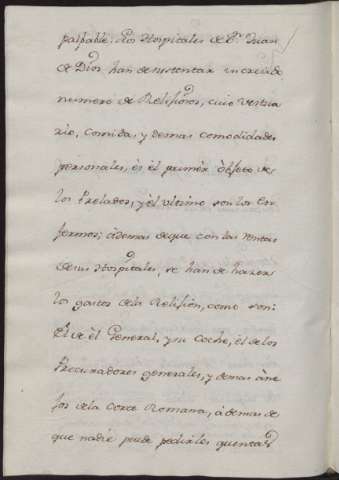 palpable. Los Hospitales de Sn. Juan
de Dios han de sustentar increcido
numero de Religiosos, cuio vestua
rio, comida, y demas comodidades
personales, és él primér óbjeto de
los Prelados, y él vltimo son los en
fermos; ádemas deque con las rentas
de sus Hospitales, se han de hazer
los gastos dela Religion, como son:
El de él General, y su Coche, él delos
Procuradores generales, y demas áne
jos dela Corte Romana, ádemas de
que nadie puede pedirles quentas